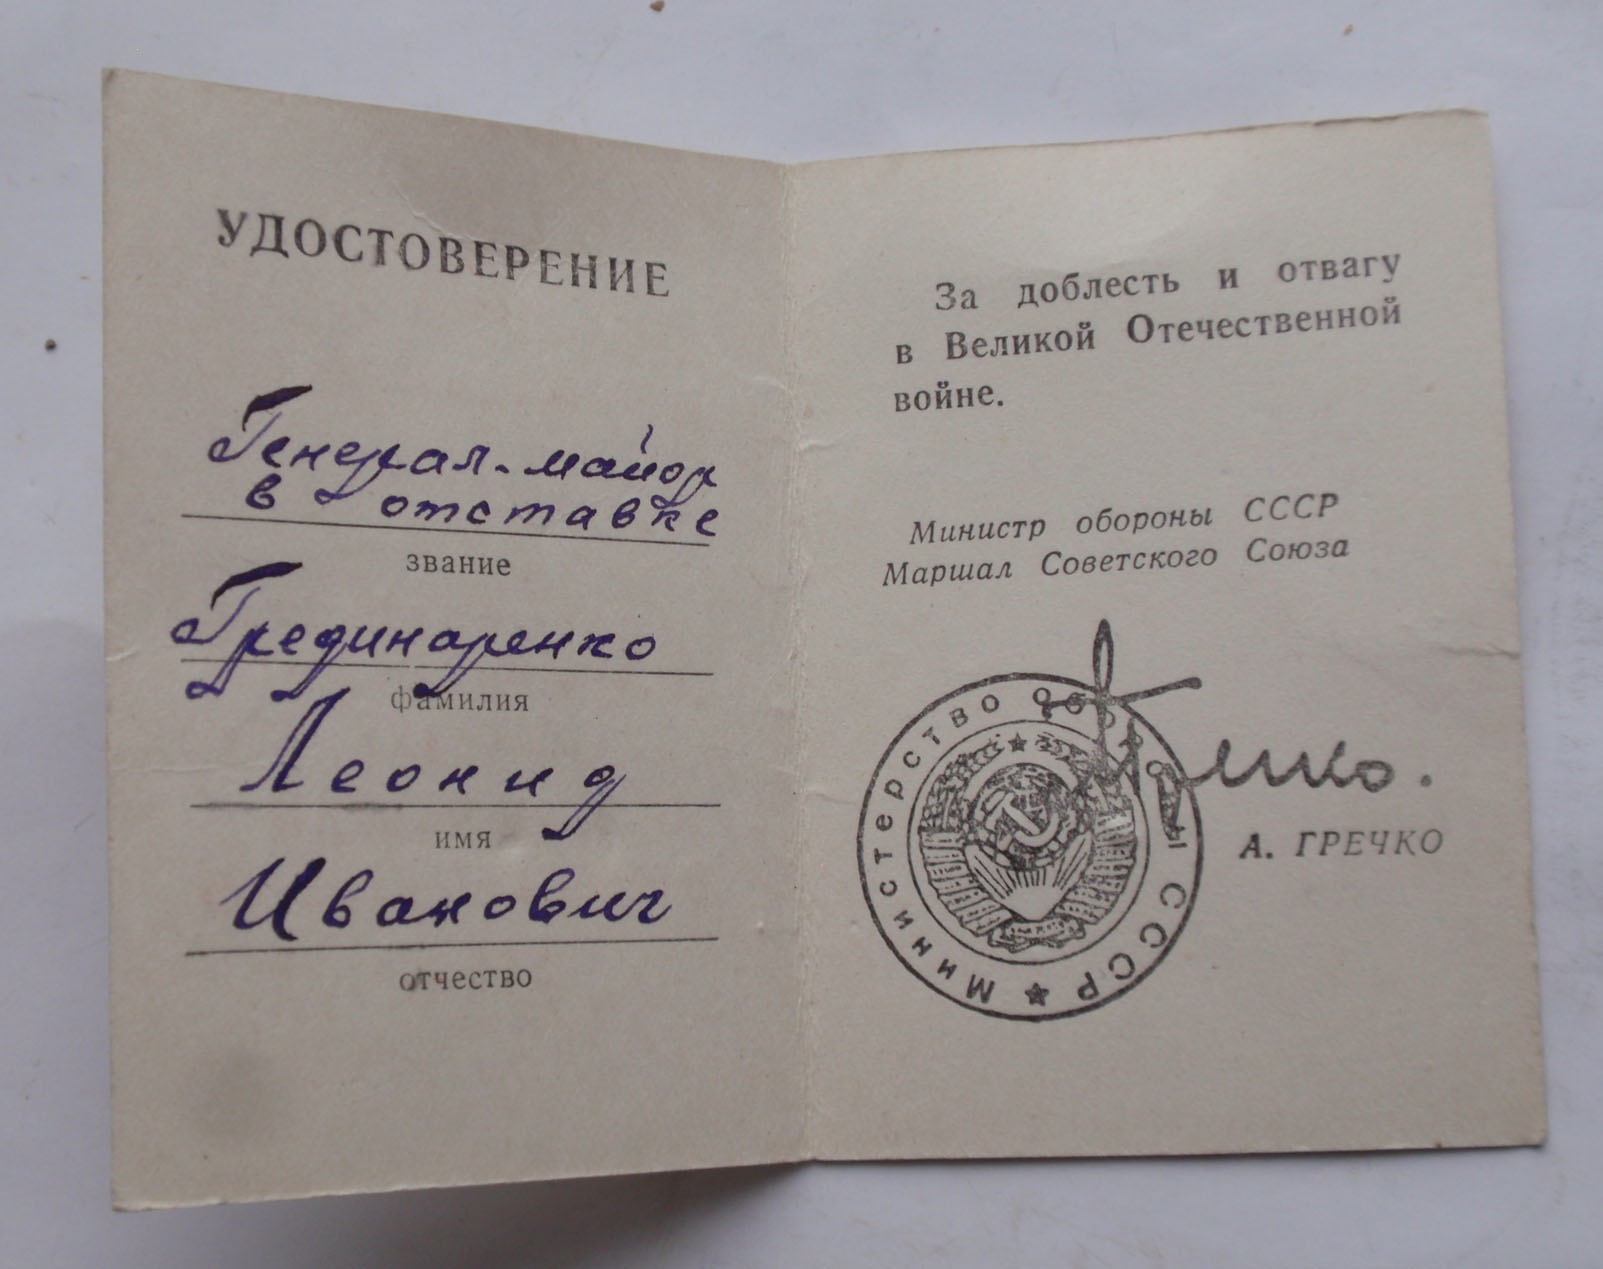 УДОСТОВЕРЕНИЕ
Генерал-майор
в отставке
звание
Грединаренко
фамилия
Леонид
имя
Иванович
отчество
За доблесть и отвагу
в Великой Отечественной
войне.
Министр обороны СССР
Маршал Советского Союза
Гречко.
А. ГРЕЧКО
Министерство обороны СССР